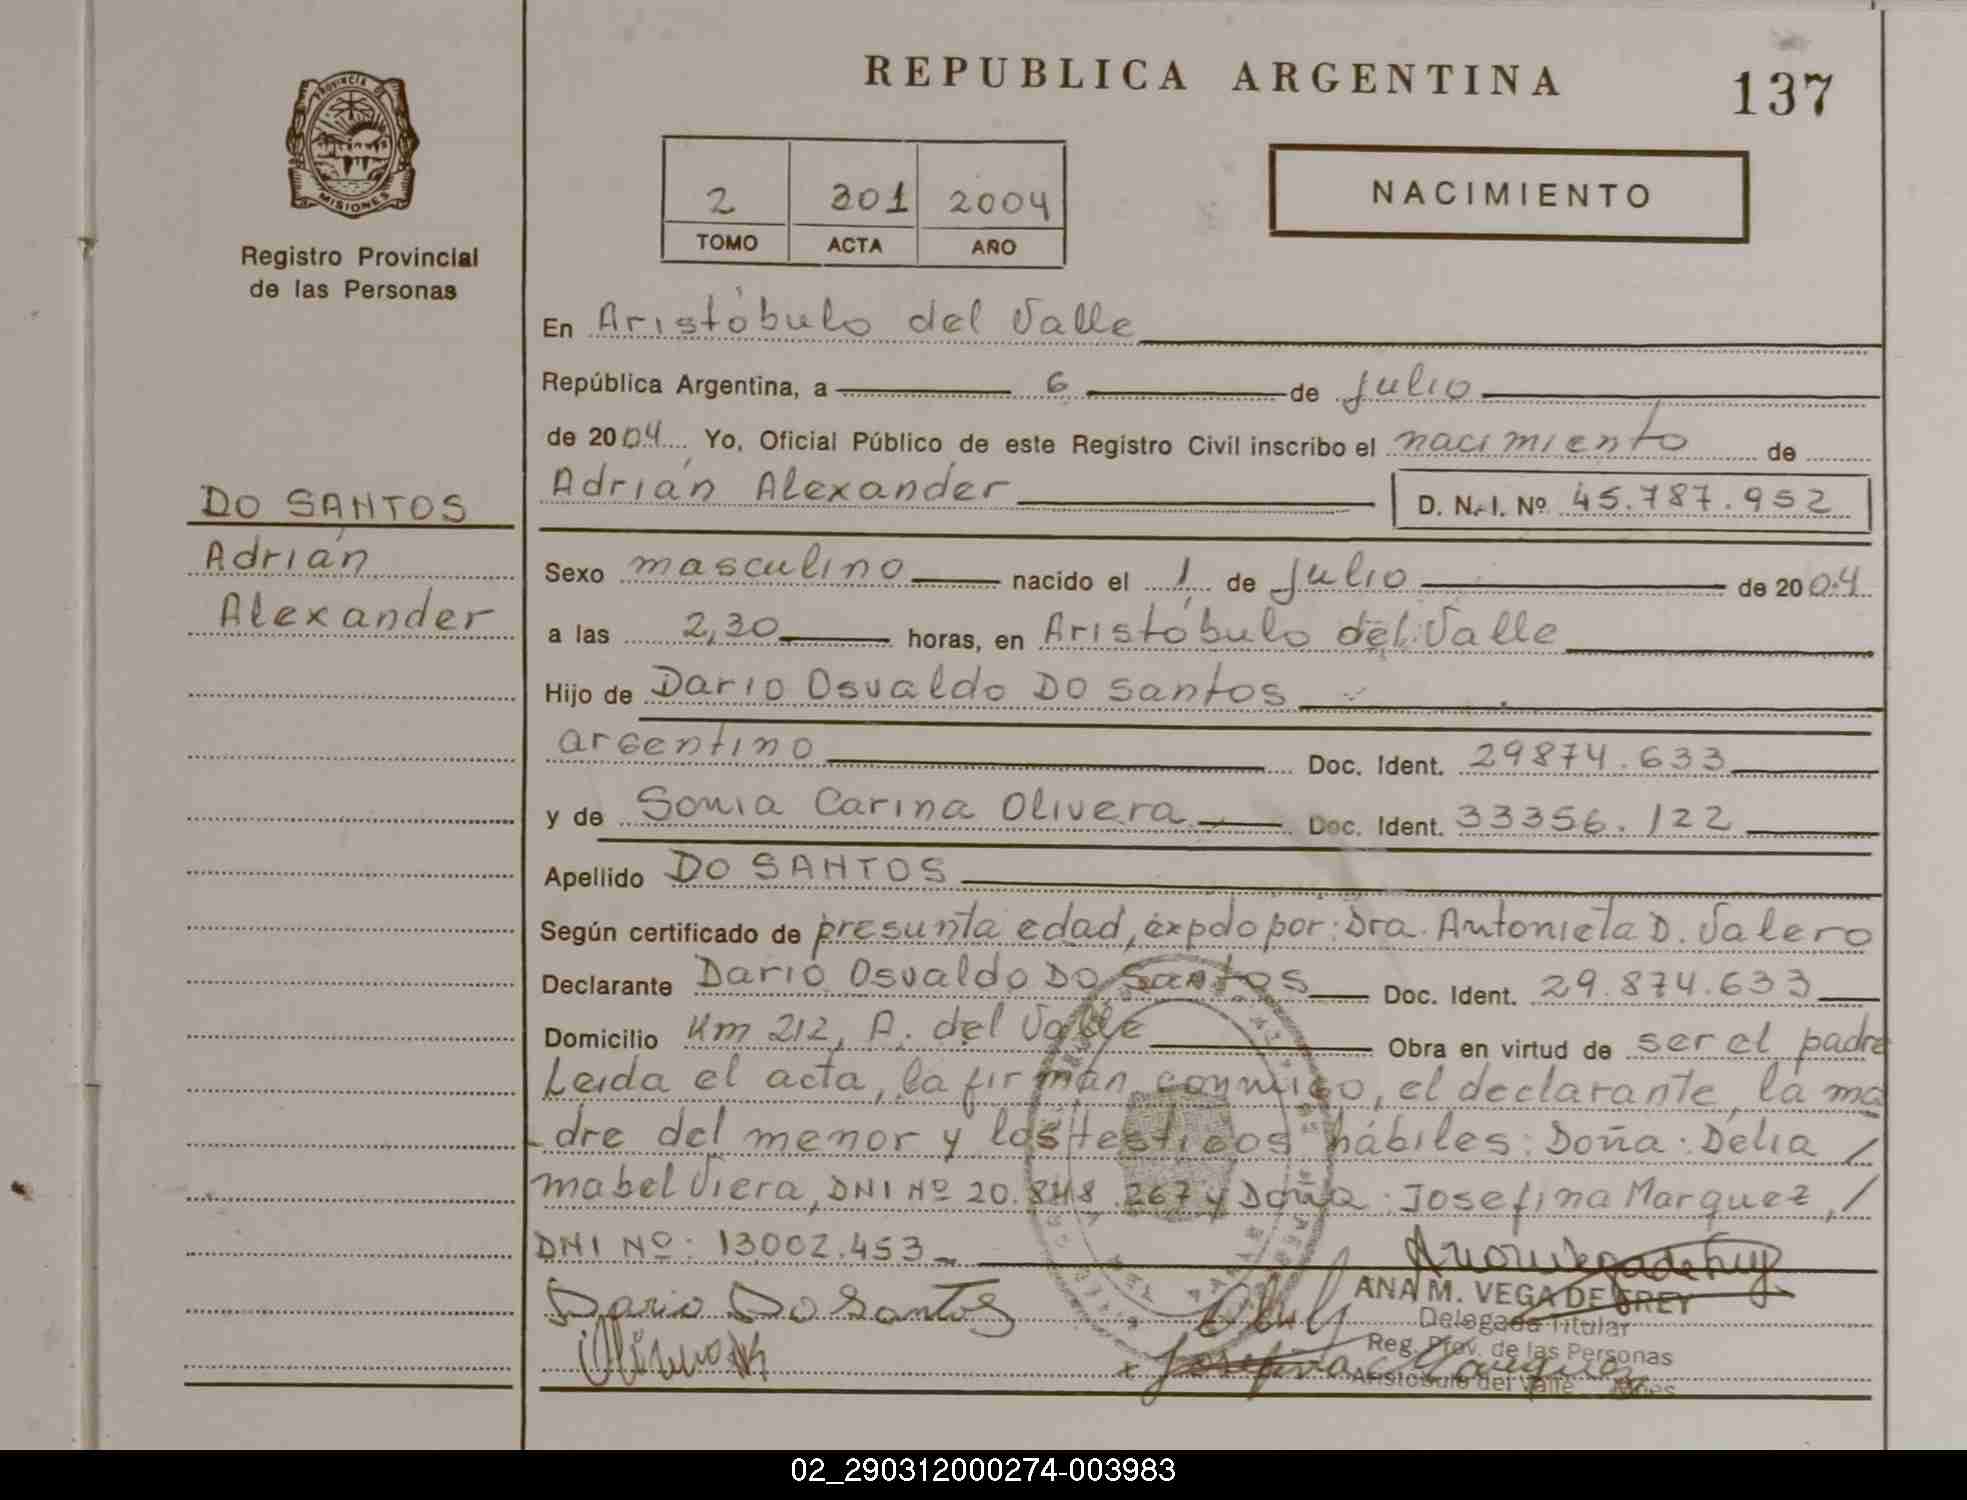 REPUBLICA ARGENTINA
137
PROVINCIA DE
MISIONES
Registro Provincial
de las Personas
2 301 2004
TOMO ACTA AÑO
NACIMIENTO
DO SANTOS
Adrián
Alexander
En Aristóbulo del Valle
República Argentina, a 6 de julio
de 2004 Yo, Oficial Público de este Registro Civil inscribo el nacimiento de
Adrián Alexander D. N. I. Nº 45.787.952
Sexo masculino nacido el 1 de julio de 2004
a las 2,30 horas, en Aristóbulo del Valle
Hijo de Dario Osvaldo DO Santos
argentino Doc. Ident. 29874.633
y de Sonia Carina Olivera Doc. Ident. 33356.122
Apellido DO SANTOS
Según certificado de presunta edad, expdo por: Dra. Antonieta D. Valero
Declarante Dario Osvaldo DO Santos Doc. Ident. 29.874.633
Domicilio Km 212, A. del Valle Obra en virtud de ser el padre
Leida el acta, la firman conmigo, el declarante, la ma
dre del menor y los testigos hábiles: Doña: Delia /
mabel Viera, DNI Nº 20.848.267 y Doña: Josefina Marquez, /
DNI Nº: 13002.453
Dario Do Santos
ANA M. VEGA DE FREY
Delegada Titular
Reg. Prov. de las Personas
Josefina Marquez
Aristobulo del Valle Mnes
02_290312000274-003983